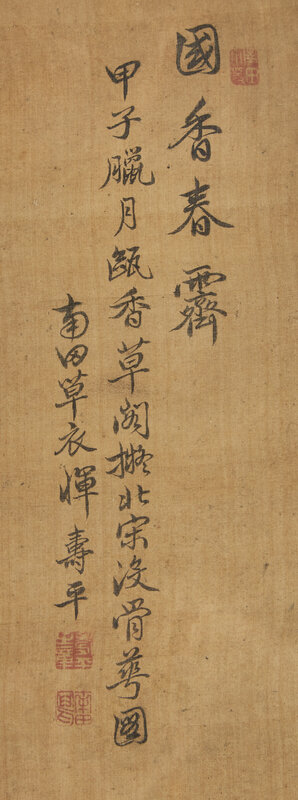 國香春霽
甲子臘月甌香草閣擬北宋没骨蕚圖
南田草衣惲壽平